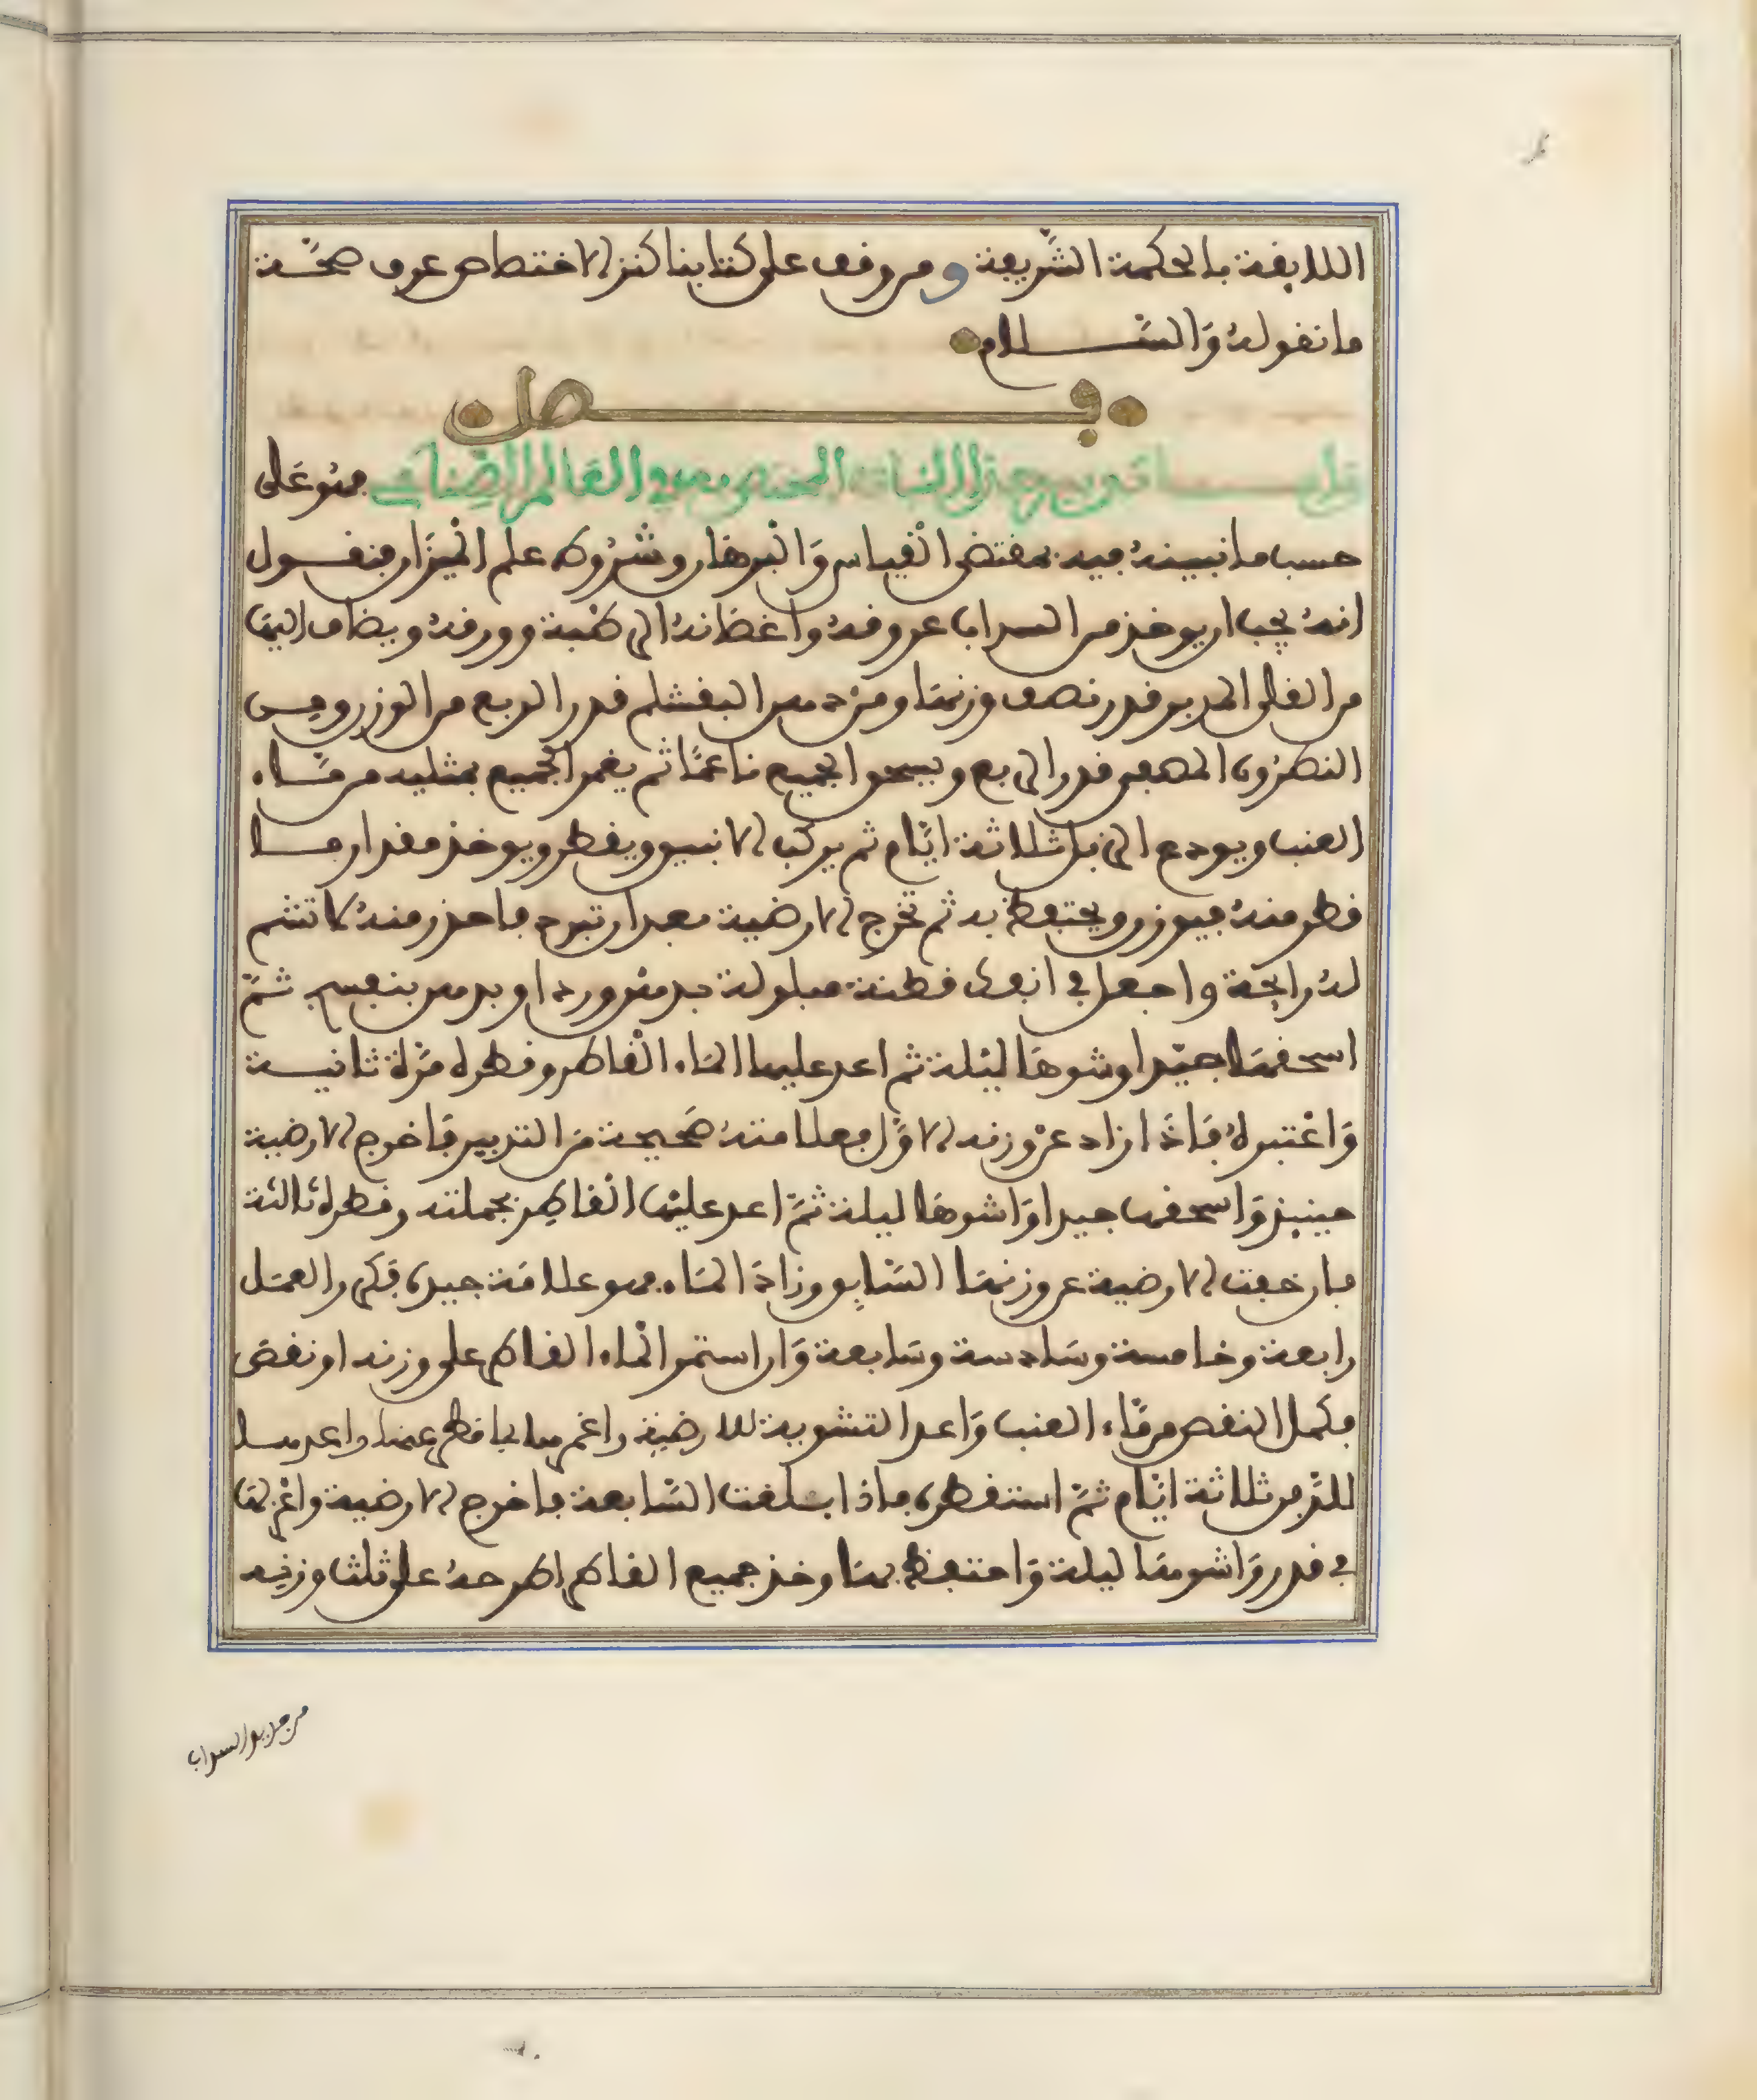 اللايقة بالحكمة الشريفة ومن وقف على كتابنا كنز الاختصاص عرف صحة
ما نقوله والسلام
فصل
واما تدبير هذا النبات المختص به في العالم الصناعي فهو على
حسب ما نبينه فيه بمقتضى القياس والبرهان وشروط علم الميزان فنقول
انه يجب ان يوخذ من السداب عروقه واغصانه الرطبة وورقه ويضاف اليها
من القلى المدبر قدر نصف وزنها ومن دهن البقشلم قدر الربع من الوزن ومن
النطرون المصفى قدر الربع ويسحق الجميع ناعما ثم يغمر الجميع بمثليه من ماء
العنب ويودع الزبل ثلاثة ايام ثم يركب الانبيق ويقطر ويوخذ مقدار ما
قطر منه فيوزن ويحتفظ به ثم تخرج الارضية بعد ان تبرد فاحذر منه لا تشم
له رايحة واجعل في انفك قطنة مبلولة بدهن ورد او بدهن بنفسج ثم
اسحقها جيدا وشوها ليلة ثم اعد عليها الماء القاطر وقطره مرة ثانية
واعتبره فاذا زاد عن وزنه الاول فعلامته صحيحة من التدبير فاخرج الارضية
حينيذ واسحقها جيدا واشوها ليلة ثم اعد عليها القاطر بجملته وقطره ثالثة
فان خفت الارضية عن وزنها السابق وزاد الماء فهو علامة جيدة فكرر العمل
رابعة وخامسة وسادسة وسابعة وان استمر الماء القاطر على وزنه او نقص
فكمل النقص من ماء العنب واعد التشوية للارضية واغمرها بما قطر عنها واعدها
للدفن ثلاثة ايام ثم استقطره فاذا بلغت السابعة فاخرج الارضية واغزلها
في قدر واشوها ليلة واحتفظ بها وخذ جميع القاطر اطرحه على ثلث وزنه
من هذا السداب